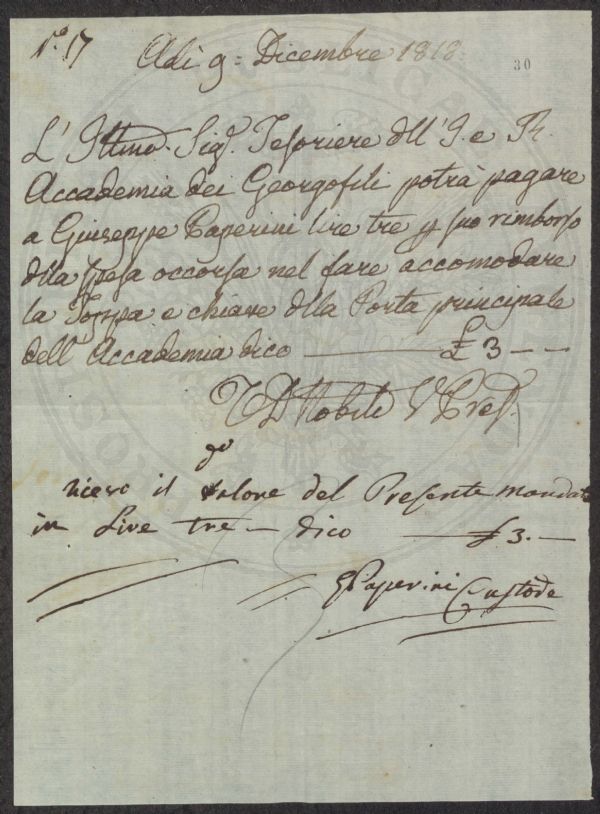 N.° 17
Adi 9= Dicembre 1818.
30
L'Illmo. Sig.r Tesoriere dll' I. e R.
Accademia dei Georgofili potrà pagare
a Giuseppe Paperini lire tre p suo rimborso
dlla spesa occorsa nel fare accomodare
la Toppa e chiave dlla Porta principale
dell'Accademia dico £ 3 – –
Nobili V. Pres.
go
ricevo il valore del Presente mandato
in Lire tre – dico £ 3. –
G Paperini Custode